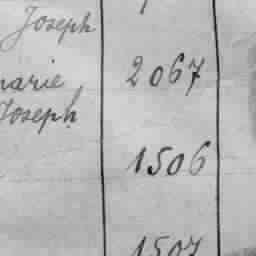 Joseph
marie 2067
Joseph
1506
1507